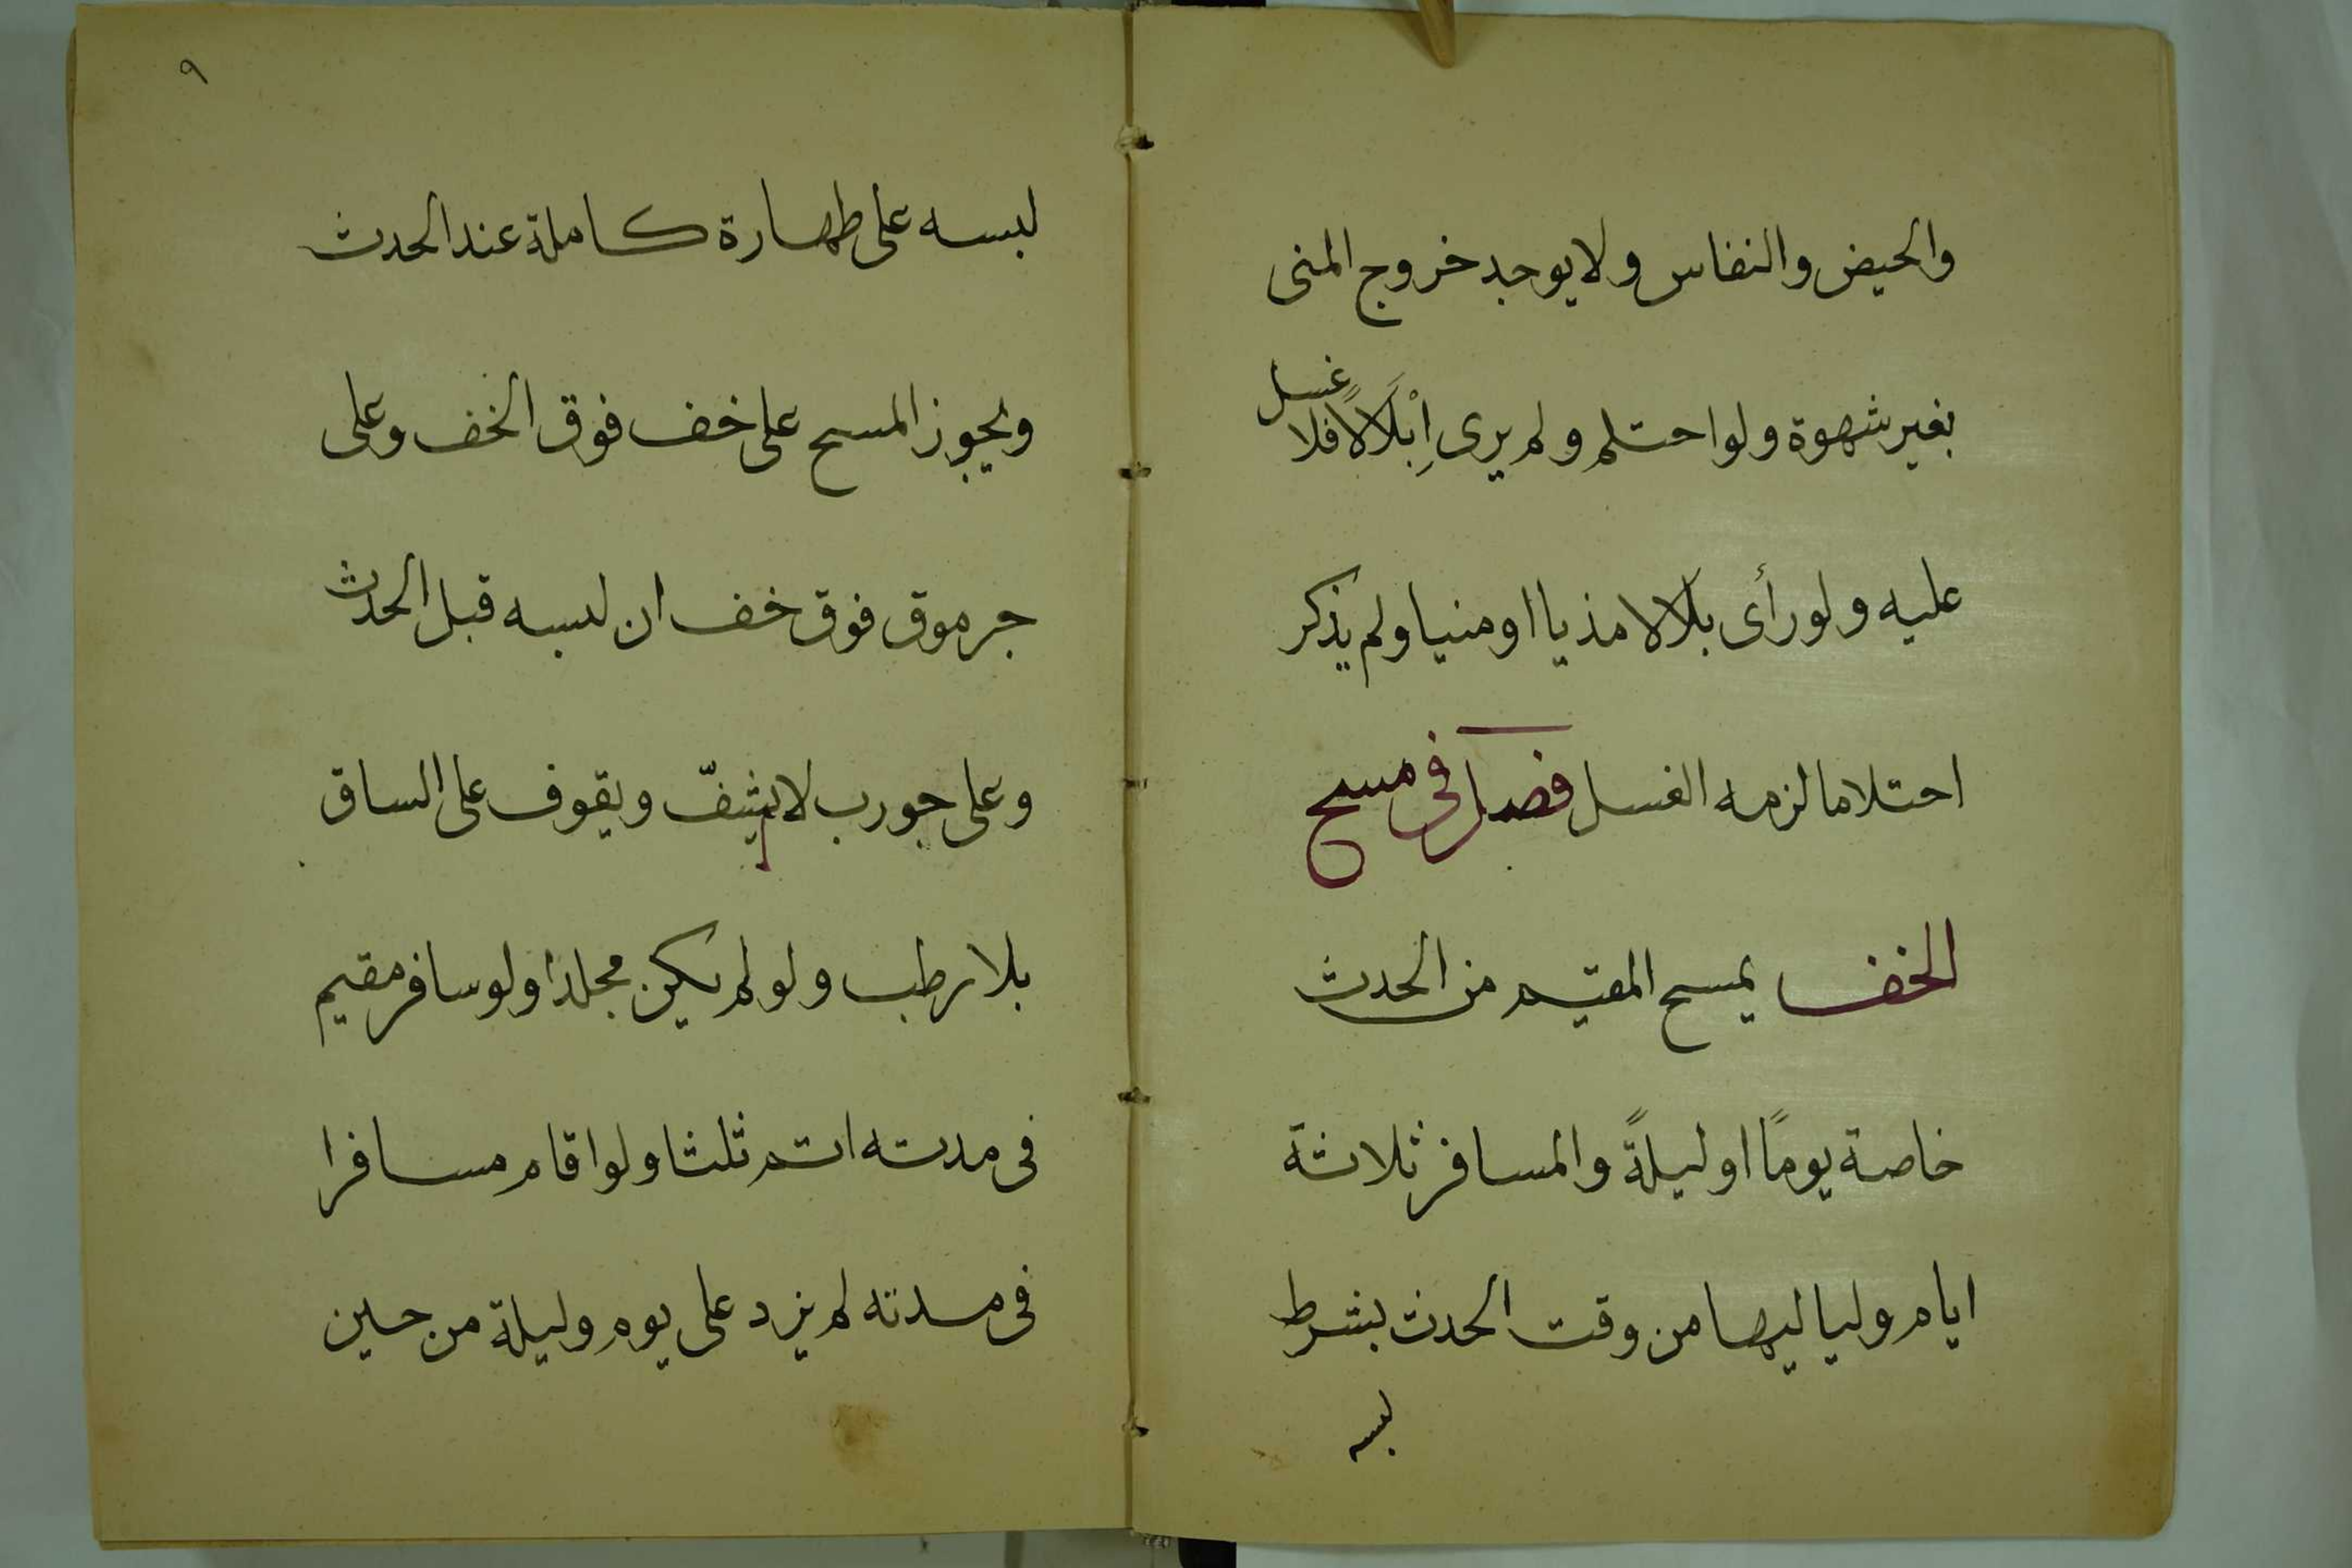 والحيض والنفاس ولا يوجد خروج المنى
بغير شهوة ولو احتلم ولم يرى اِبْلَالًا فلا غسل
عليه ولو رأى بلالا مذيا او منيا ولم يذكر
احتلاما لزمه الغسل فصل فى مسح
الخف يمسح المقيم من الحدث
خاصة يومًا او ليلةً والمسافر ثلاثة
ايام ولياليها من وقت الحدث بشرط
لبسه
٩
لبسه على طهارة كاملة عند الحدث
ويجوز المسح على خف فوق الخف وعلى
جرموق فوق خف ان لبسه قبل الحدث
وعلى جورب لا يشفّ ويقوف على الساق
بلا رطب ولو لم يكن مجلدا ولو سافر مقيم
فى مدته اتم ثلثا ولو اقام مسافرا
فى مدته لم يزد على يوم وليلة من حين